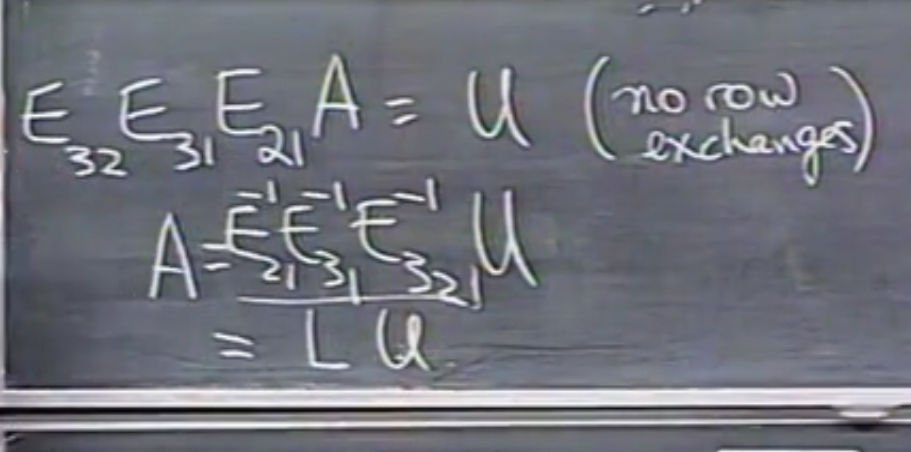 E₃₂ E₃₁ E₂₁ A = U (no row exchanges)
A = E₂₁⁻¹ E₃₁⁻¹ E₃₂⁻¹ U
= L U